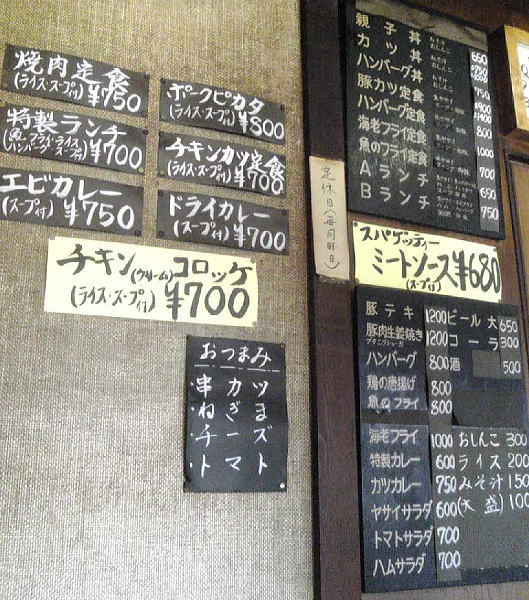 焼肉定食
(ライス・スープ付)¥750
ポークピカタ
¥800
特製ランチ
(魚フライ・ライス
ハンバーグ・スープ付)¥700
チキンカツ定食
(ライス・スープ付)¥700
エビカレー
(スープ付)¥750
ドライカレー
(スープ付)¥700
チキン(クリーム)コロッケ
(ライス・スープ付)¥700
おつまみ
・串カツ
・ねぎま
・チーズ
・トマト
定休日(毎月曜日)
親子丼 みそ汁 おしんこ 650
カツ丼 みそ汁 おしんこ
ハンバーグ丼 750
豚カツ定食
ハンバーグ定食 800
海老フライ定食 1000
魚のフライ定食 700
Aランチ 650
Bランチ 750
スパゲッティー
ミートソース¥680
(スープ付)
豚テキ 1200
豚肉生姜焼き 1200
ブタニクショーガ
ハンバーグ 800
鶏の唐揚げ 800
魚のフライ 800
ビール大 650
コーラ 300
酒 500
海老フライ 1000
特製カレー 600
カツカレー 750
ヤサイサラダ 600
トマトサラダ 700
ハムサラダ 700
おしんこ 300
ライス 200
みそ汁 150
(大盛) 100